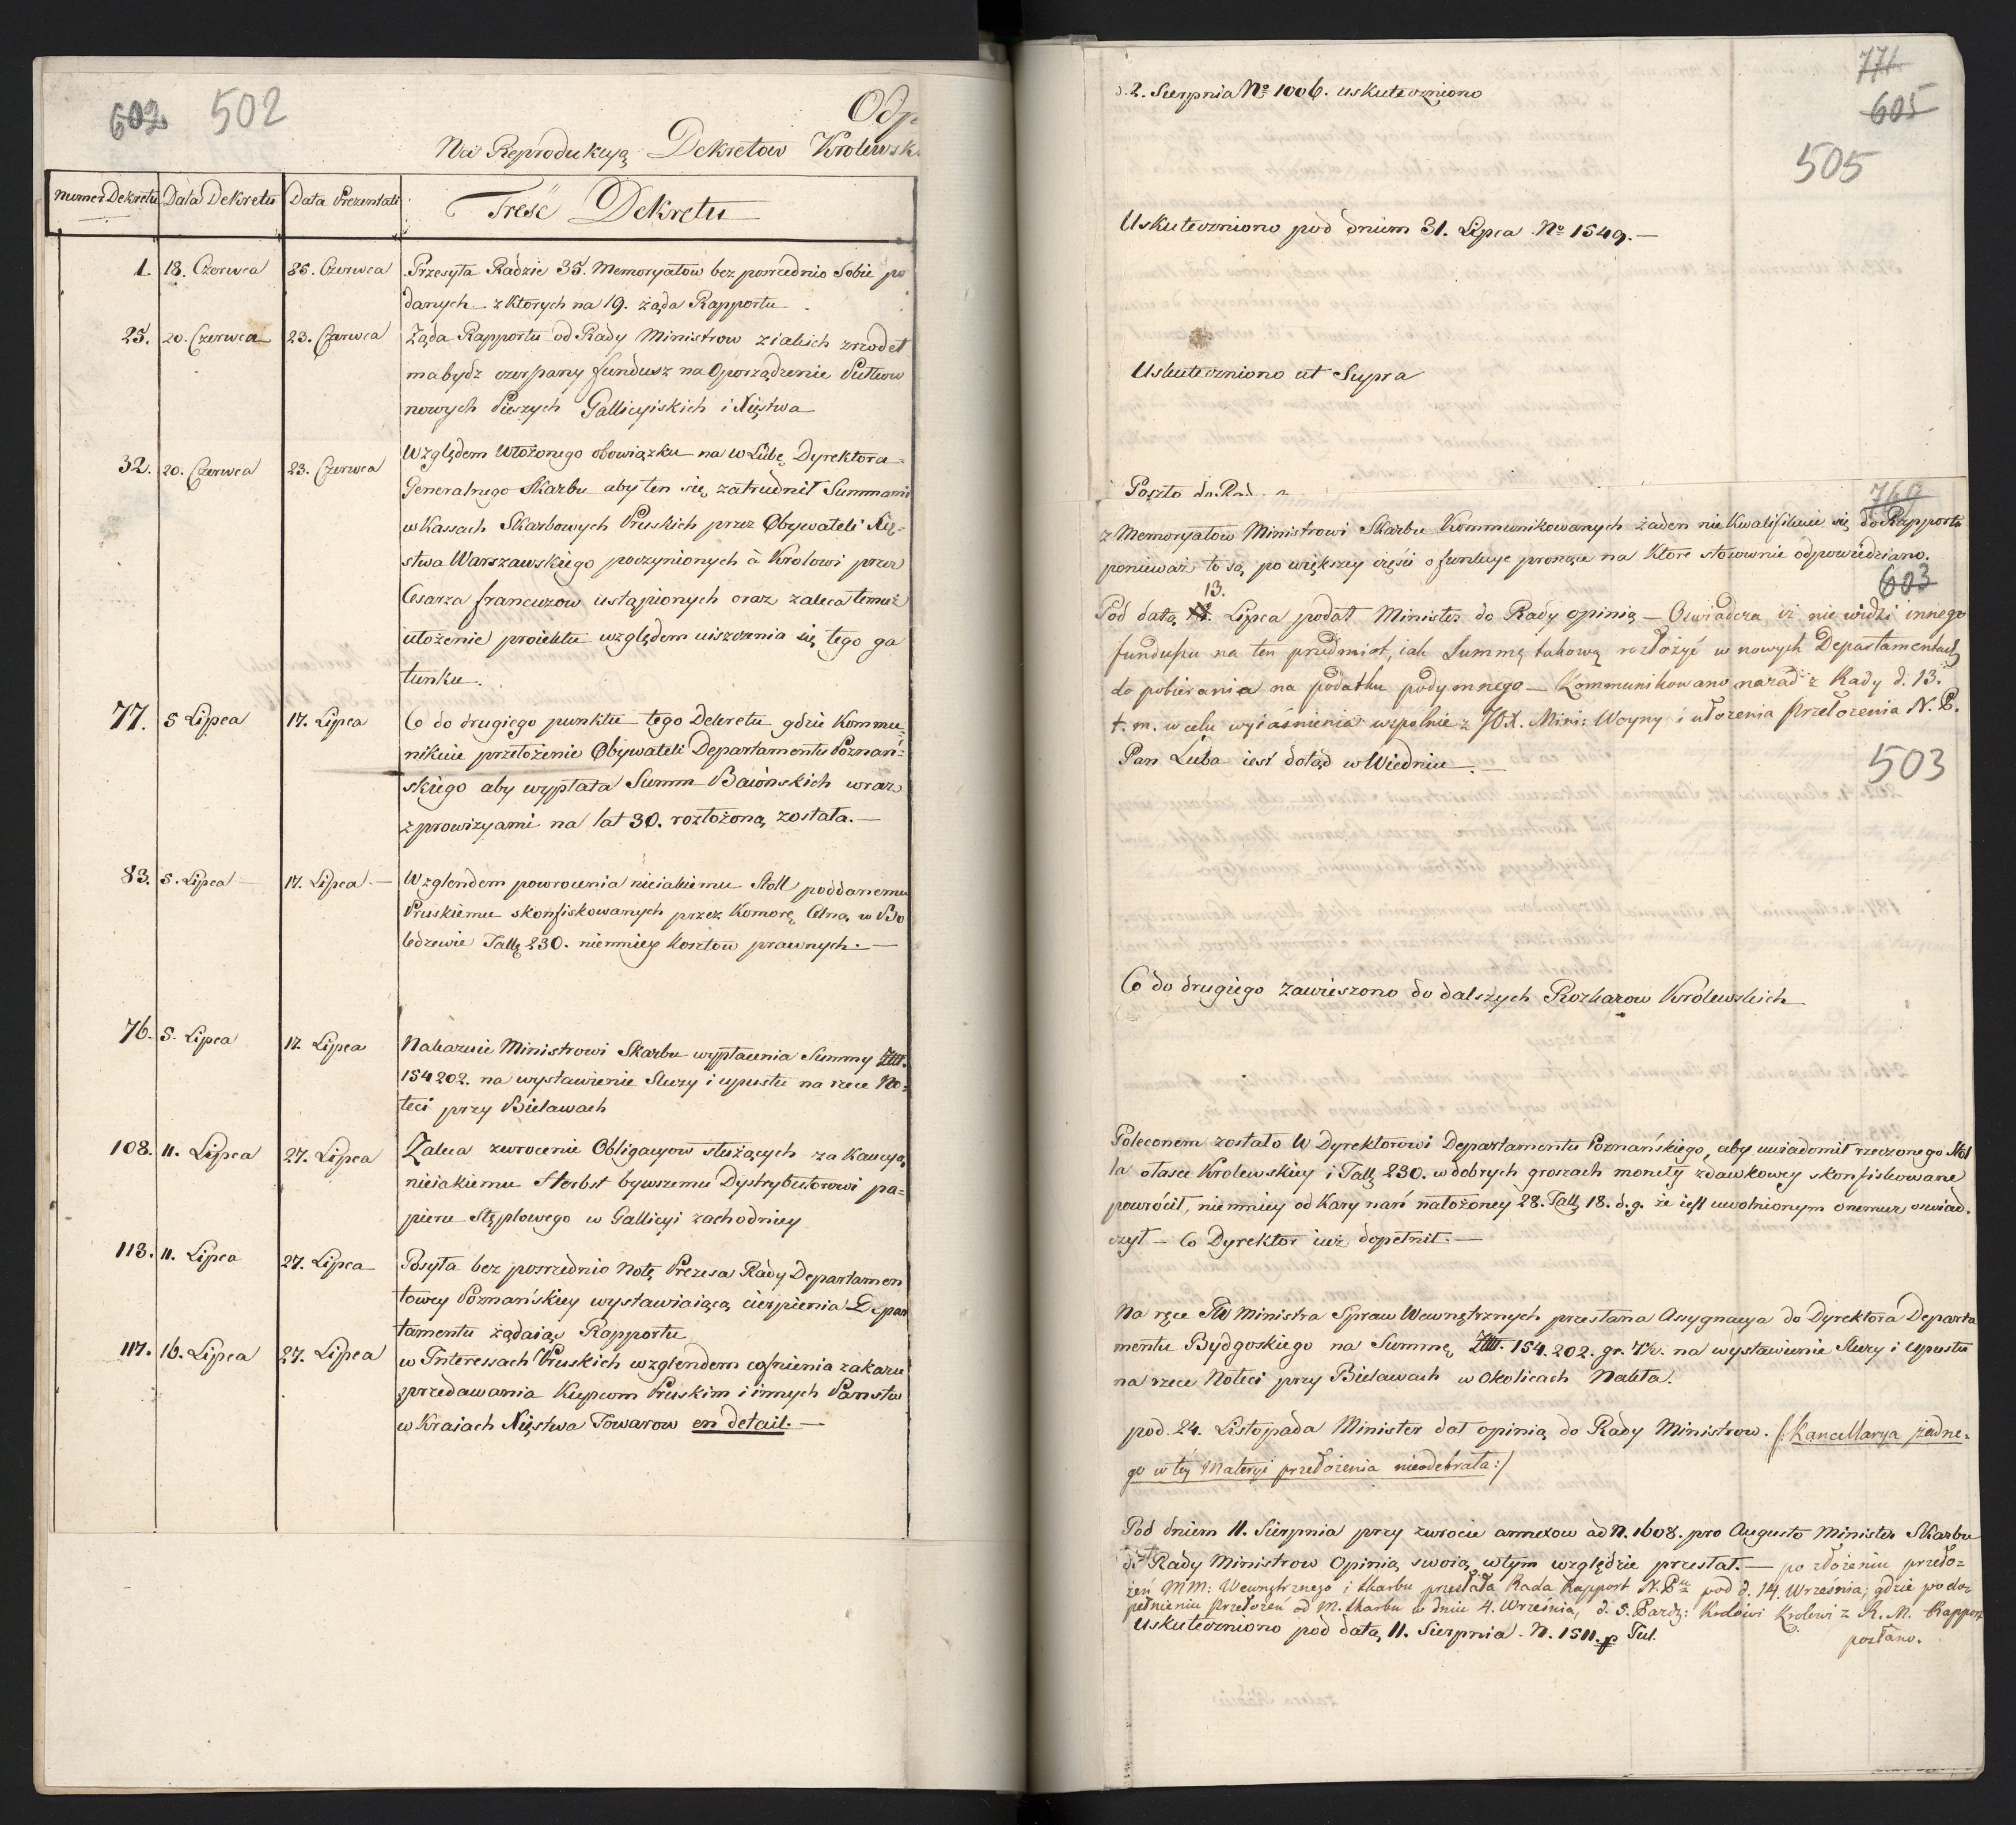 602 502
Odp
Na Reprodukcyą Dekretow Krolewsk
Numer Dekretu Data Dekretu Data Prezentati Treść Dekretu
1. 18. Czerwca 25. Czerwca Przesyła Radzie 35. Memoryałow bez posrzednio Sobie po
danych z ktorych na 19. żąda Rapportu
25. 20. Czerwca 23. Czerwca Żąda Rapportu od Rady Ministrow z iakich zrzodeł
ma bydź czerpany fundusz na Oporządzenie Pułkow
nowych Pieszych Gallicyiskich i Xięstwa
32. 20. Czerwca 23. Czerwca Względem włożonego obowiązku na W Łubę Dyrektora
Generalnego Skarbu aby ten się zatrudnił Summami
w Kassach Skarbowych Pruskich przez Obywateli Xię-
stwa Warszawskiego poczynionych à Krolowi przez
Cesarza francuzow ustąpionych oraz zaleca temuż
ułożenie proiektu względem uiszczenia się tego ga
tunku.
77. 5 Lipca 17. Lipca Co do drugiego punktu tego Dekretu gdzie Kommu-
nikuie przełożenie Obywateli Departamentu Poznań-
skiego aby wypłata Summ Baiońskich wraz
z prowizyami na lat 30. rozłożoną została.—
83. 5. Lipca — 17. Lipca.— Wzglendem powrocenia nieiakiemu Stoll poddanemu
Pruskiemu skonfiskowanych przez Komorę Celną w Bo
ledzewie Tall 230. niemniey kosztow prawnych.—
76. 5. Lipca 17. Lipca Nakazuie Ministrowi Skarbu wypłacenia Summy
154202. na wystawienie Sluzy i upustu na rzece No-
teci przy Bielawach
108. 11. Lipca 27. Lipca Zaleca zwrocenie Obligacyow służących za Kaucyą
nieiakiemu Herbst bywszemu Dystrybutorowi pa-
pieru Stęplowego w Gallicyi zachodniey
113. 11. Lipca 27. Lipca Posyła bez posrzednio Notę Prezesa Rady Departamen
towey Poznańskiey wystawiaiącą cierpienia Depar
tamentu żądaiąc Rapportu
117. 16. Lipca 27. Lipca w Interessach Pruskich wzglendem cofnienia zakazu
przedawania Kupcom Pruskim i innych Panstw
w Kraiach Xięstwa Towarow en detail.—
771
605
505
2. Sierpnia No 1006. uskuteczniono
Uskuteczniono pod dniem 31. Lipca No 1549.—
Uskuteczniono ut Supra
Poszło do Rad
760
z Memoryałow Ministrowi Skarbu Kommunikowanych żaden nie kwalifikuie się do Rapportu
ponieważ to są po większey części o funduye proszące na ktore stosownie odpowiedziano.
603
13.
Pod datą Lipca podał Minister do Rady opinią — Oswiadcza iż nie widzi innego
funduszu na ten przedmiot, iak Summę takową rozłożyć w nowych Departamentach
do pobierania na podatku podymnego — Kommunikowano nazad z Rady d. 13.
t. m. w celu wyiaśnienia wspolnie z JOX. Mini: Woyny i ułożenia Przełożenia N. P.
Pan Łuba iest dotąd w Wiedniu.—
503
Co do drugiego zawieszono do dalszych Rozkazow Krolewskich
Poleconem zostało W Dyrektorowi Departamentu Poznańskiego, aby uwiadomił rzeczonego Stol
la o łasce Krolewskiey i Tall 230. w dobrych groszach monety zdawkowey skonfiskowane
powrócił, niemniey od Kary nań nałożoney 28. Tall 18. d. g. że iest uwolnionym onemuż oswiad.
czył — Co Dyrektor iuż dopełnił.—
Na ręce JW Ministra Spraw Wewnętrznych przesłana Assygnacya do Dyrektora Departa
mentu Bydgoskiego na Summę 154.202. gr. 7½. na wystawienie Sluzy i Upustu
na rzece Noteci przy Bielawach w okolicach Nakła.
pod 24. Listopada Minister dał opinią do Rady Ministrow. /: Kancellarya żadne-
go w tey Materyi przełożenia nieodebrała :/
Pod dniem 11. Sierpnia przy zwrocie annexow ad N. 1608. pro Augusto Minister Skarbu
do Rady Ministrow Opinią swoią w tym względzie przesłał.— po złożeniu przeło-
żeń MM: Wewnętrznego i Skarbu przesłała Rada Rapport N. Pu pod d. 14 Września; gdzie po do-
pełnieniu Przełożeń od M. Skarbu w dniu 4. Września, d. 5. Pazdz: Krolowi z R. M. Rapport
posłano.
Uskuteczniono pod datą 11. Sierpnia. N. 1511. p Jul.